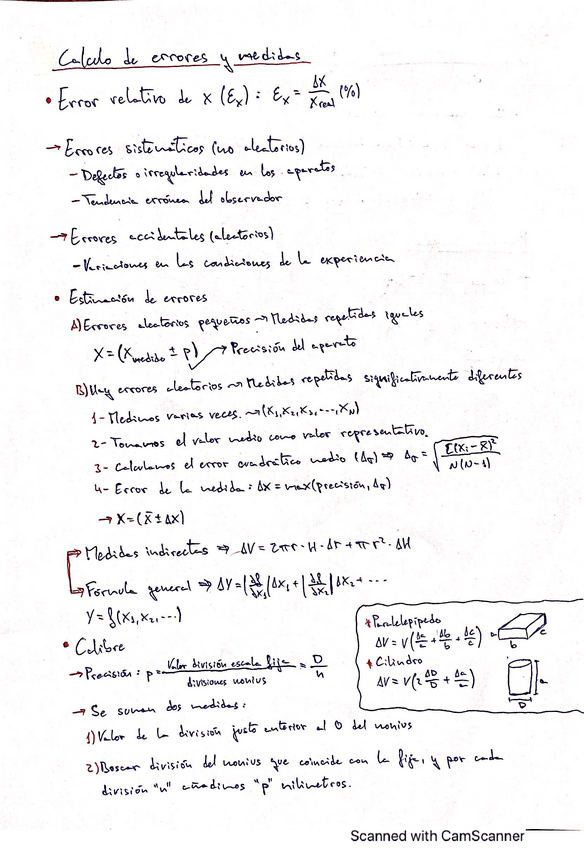 Calculo de errores y medidas
• Error relativo de x (Ɛx): Ɛx = Δx / Xreal (%)
→ Errores sistemáticos (no aleatorios)
- Defectos o irregularidades en los aparatos
- Tendencia errónea del observador
→ Errores accidentales (aleatorios)
- Variaciones en las condiciones de la experiencia
• Estimación de errores
A) Errores aleatorios pequeños → Medidas repetidas iguales
X = (Xmedido ± p) → Precisión del aparato
B) Hay errores aleatorios → Medidas repetidas significativamente diferentes
1- Medimos varias veces. → (X1, X2, X3, ..., XN)
2- Tomamos el valor medio como valor representativo.
3- Calculamos el error cuadrático medio (Δσ) ⇒ Δσ = √(Σ(Xi - X̄)² / N(N-1))
4- Error de la medida: Δx = max(precisión, Δσ)
→ X = (X̄ ± Δx)
→ Medidas indirectas ⇒ ΔV = 2πr · H · Δr + πr² · ΔH
→ Fórmula general ⇒ ΔY = |∂f/∂x1| ΔX1 + |∂f/∂x2| ΔX2 + ...
Y = f(X1, X2, ...)
* Paralelepípedo
ΔV = V(Δa/a + Δb/b + Δc/c)
a b c
* Cilindro
ΔV = V(2 ΔD/D + Δa/a)
D a
• Calibre
→ Precisión: p = Valor división escala fija / divisiones nonius = D/n
→ Se suman dos medidas:
1) Valor de la división justo anterior al 0 del nonius
2) Buscar división del nonius que coincide con la fija, y por cada
división "n" añadimos "p" milímetros.
Scanned with CamScanner